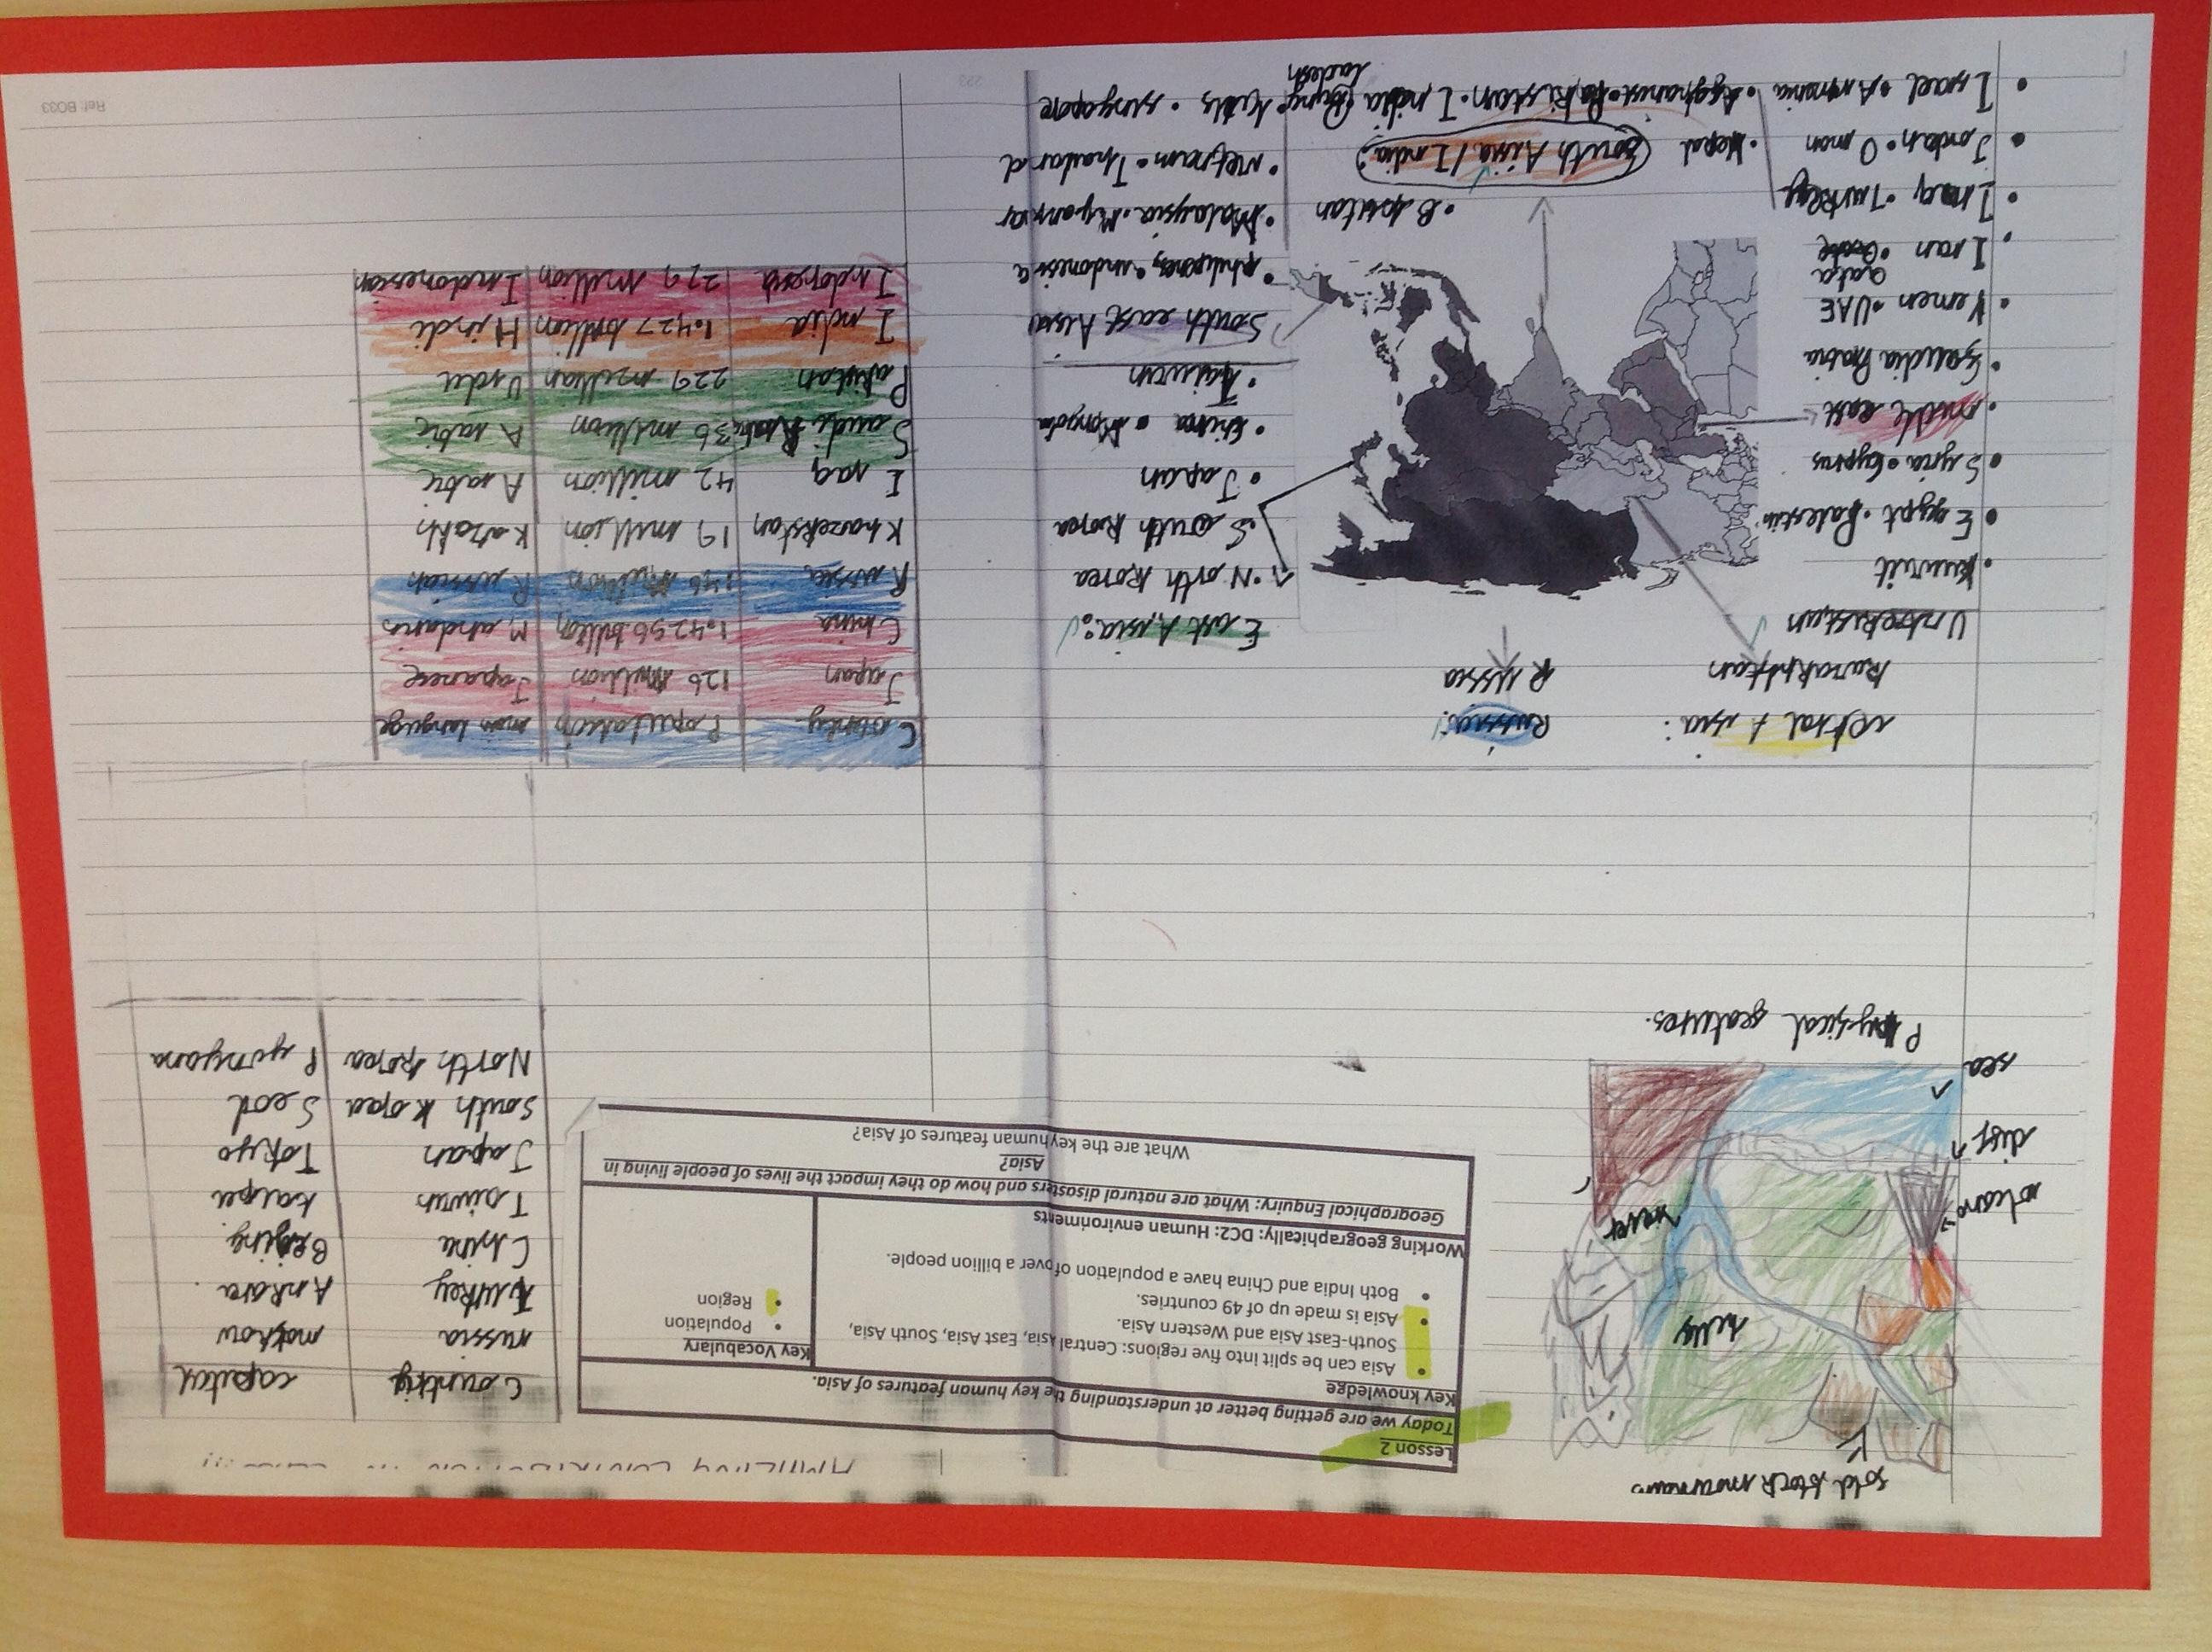 fold block mountains
volcano
diff
sea
hills
Physical featutes.
Lesson 2
Today we are getting better at understanding the key human features of Asia.
Key knowledge
• Asia can be split into five regions: Central Asia, East Asia, South Asia,
South-East Asia and Western Asia.
• Asia is made up of 49 countries.
• Both India and China have a population of over a billion people.
Key Vocabulary
• Population
• Region
Working geographically: DC2: Human environments
Geographical Enquiry: What are natural disasters and how do they impact the lives of people living in
Asia?
What are the key human features of Asia?
Country capital
russia moskow
Turkey Ankara.
China Beijing.
Taiwan taipei
Japan Tokyo
South Korea Seoul
North Korea Pyongyana
Asia:
Kazakhstan
Uzbekistan
Russia:
Russia
• Kuwait
• Egypt • Palestin
• Syria • Cyprus
• middle east
• Saudia Arabia
• Yemen • UAE
• Iran • Qata
• Iraq • Turkey
• Jordan • Oman
• Israel • Armenia
East Asia:
• North Korea
• South Korea
• Japan
• China • Mongola
• Taiwan
South east Aisia
• Philipines • indonesia
• Malaysia • Myanmar
• Vietnam • Thailand
• singapore
• Bhutan
South Aisia / India:
• Nepal
• Afghanist • Pakistan • India • Bang
ladesh
Country Population main language
Japan 125 million Japanese
China 1.4256 billion Mandaris
Russia 146 million Russian
Khazekstan 19 million Kazakh
Iraq 42 million Arabic
Saudi Arabia 36 million Arabic
Pakistan 229 million Urdu
India 1.427 billion Hindi
Indonesia 279 million Indonesian
Ref: BO33